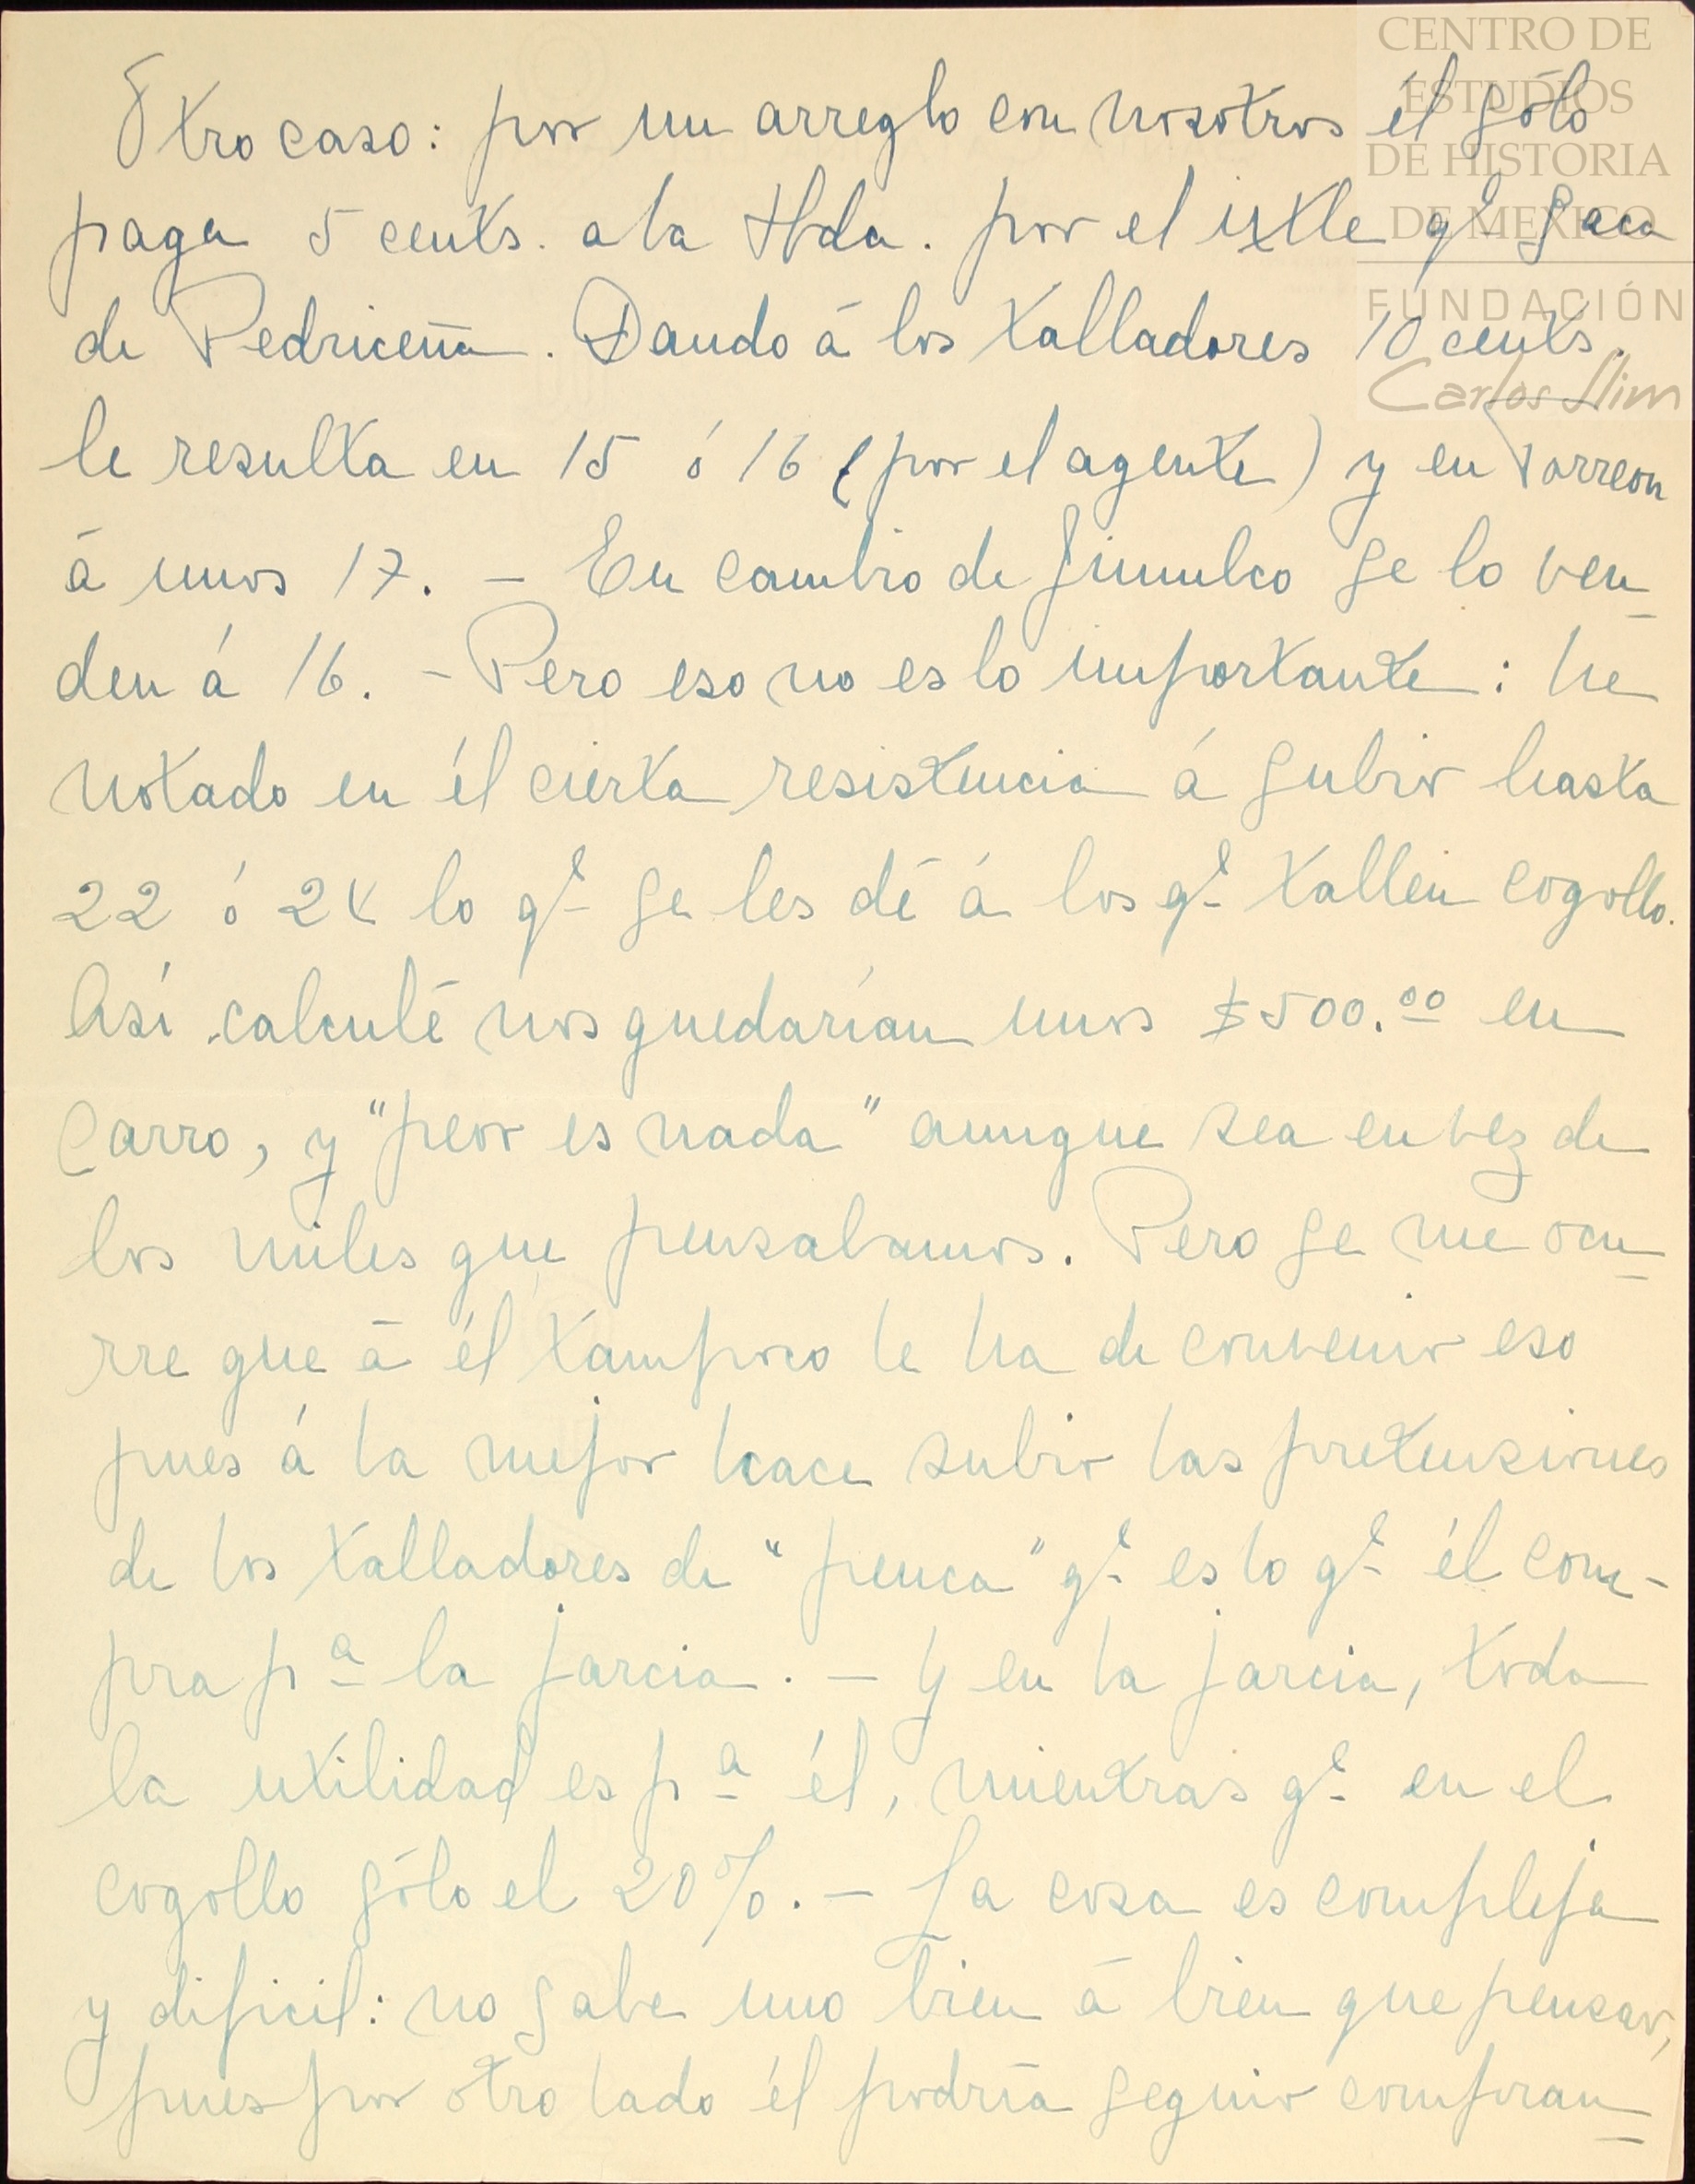 CENTRO DE
ESTUDIOS
DE HISTORIA
DE MÉXICO
FUNDACIÓN
Carlos Slim
Otro caso: por un arreglo con nosotros él sólo
paga 5 cents. a la Hda. por el ixtle qe saca
de Pedriceña. Dando á los talladores 10 cents.
le resulta en 15 ó 16 (por el agente) y en Torreon
á unos 17. – En cambio de Jimulco se lo ven-
den á 16. – Pero eso no es lo importante: he
notado en él cierta resistencia á subir hasta
22 ó 24 lo qe se les dé á los qe tallen cogollo.
Así calculé nos quedarían unos $500.00 en
carro, y "peor es nada" aunque sea en vez de
los miles que pensabamos. Pero se me ocu-
rre que á él tampoco le ha de convenir eso
pues á la mejor hace subir las pretensiones
de los talladores de "penca" qe es lo qe él com-
pra pa la jarcia. – Y en la jarcia, toda
la utilidad es pa él, mientras qe en el
cogollo sólo el 20%. – La cosa es compleja
y dificil: no sabe uno bien á bien que pensar,
pues por otro lado él podría seguir compran-